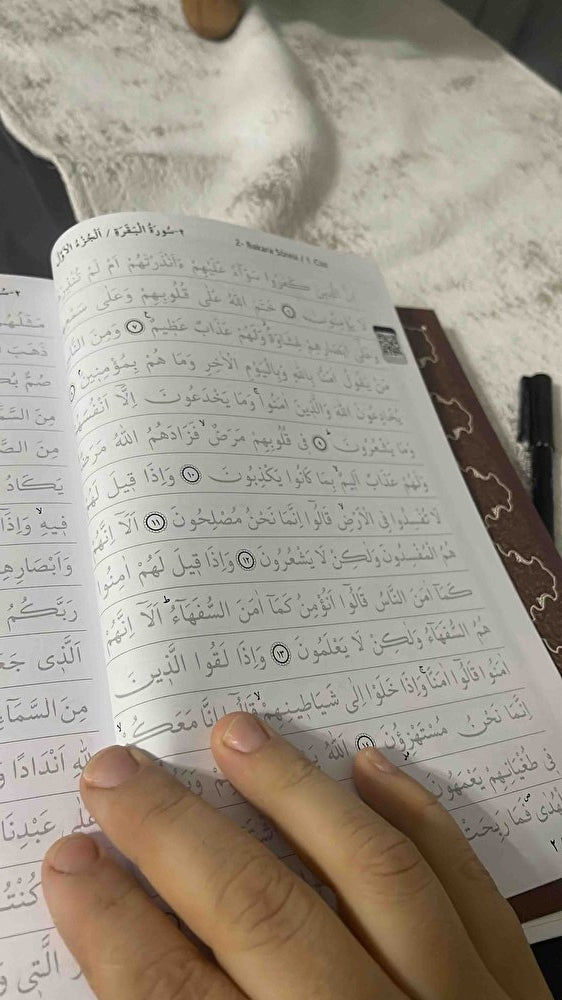 ٢-سُورَةُ الْبَقَرَةِ / اَلْجُزْءُ الْاَوَّلُ
2- Bakara Sûresi / 1. Cüz
اِنَّ الَّذٖينَ كَفَرُوا سَوَٓاءٌ عَلَيْهِمْ ءَاَنْذَرْتَهُمْ اَمْ لَمْ تُنْذِرْ
لَا يُؤْمِنُونَ ٦ خَتَمَ اللّٰهُ عَلٰى قُلُوبِهِمْ وَعَلٰى سَمْعِ
وَعَلٰٓى اَبْصَارِهِمْ غِشَاوَةٌ وَلَهُمْ عَذَابٌ عَظٖيمٌ ٧ وَمِنَ النَّا
مَنْ يَقُولُ اٰمَنَّا بِاللّٰهِ وَبِالْيَوْمِ الْاٰخِرِ وَمَا هُمْ بِمُؤْمِنٖينَ
يُخَادِعُونَ اللّٰهَ وَالَّذٖينَ اٰمَنُوا وَمَا يَخْدَعُونَ اِلَّٓا اَنْفُسَهُ
وَمَا يَشْعُرُونَ ٩ فٖى قُلُوبِهِمْ مَرَضٌ فَزَادَهُمُ اللّٰهُ مَرَضً
وَلَهُمْ عَذَابٌ اَلٖيمٌ بِمَا كَانُوا يَكْذِبُونَ ١٠ وَاِذَا قٖيلَ لَهُ
لَا تُفْسِدُوا فِى الْاَرْضِ قَالُٓوا اِنَّمَا نَحْنُ مُصْلِحُونَ ١١ اَلَٓا اِنَّهُ
هُمُ الْمُفْسِدُونَ وَلٰكِنْ لَا يَشْعُرُونَ ١٢ وَاِذَا قٖيلَ لَهُمْ اٰمِنُوا
كَمَٓا اٰمَنَ النَّاسُ قَالُٓوا اَنُؤْمِنُ كَمَٓا اٰمَنَ السُّفَهَٓاءُ اَلَٓا اِنَّهُمْ
هُمُ السُّفَهَٓاءُ وَلٰكِنْ لَا يَعْلَمُونَ ١٣ وَاِذَا لَقُوا الَّذٖينَ
اٰمَنُوا قَالُٓوا اٰمَنَّا وَاِذَا خَلَوْا اِلٰى شَيَاطٖينِهِمْ قَالُٓوا اِنَّا مَعَكُمْ
اِنَّمَا نَحْنُ مُسْتَهْزِؤُنَ ١٤ اَللّٰهُ
فٖى طُغْيَانِهِمْ يَعْمَهُونَ
فَمَا رَبِحَتْ
٢
ذَهَبَ
صُمٌّ
مِنَ
مِنَ
يَكَادُ
فٖيهِ وَاِذَٓا
وَاَبْصَارِهِ
رَبَّكُمُ
اَلَّذٖى جَعَ
مِنَ السَّمَٓاءِ
اَنْدَادًا
عَلٰى عَبْدِنَا
كُنْتُ
الَّتٖى